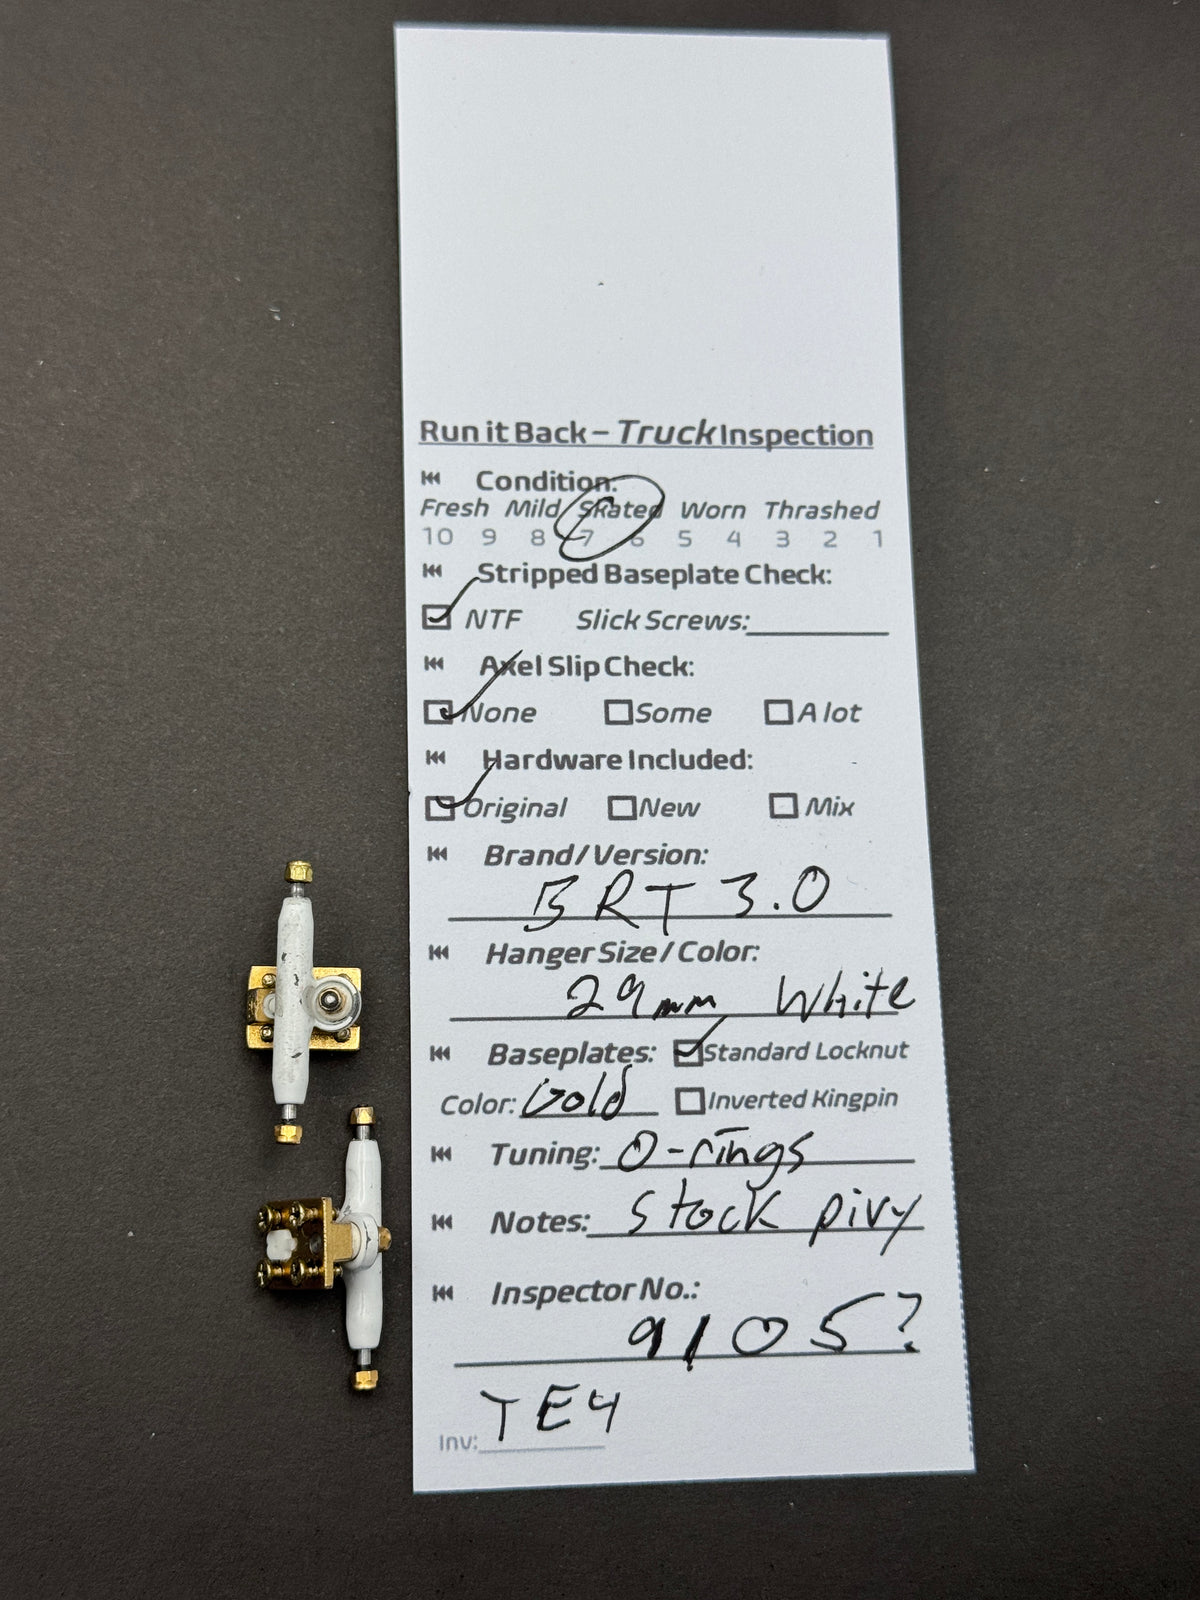 Run it Back – Truck Inspection
Condition:
Fresh Mild Skated Worn Thrashed
10 9 8 7 6 5 4 3 2 1
Stripped Baseplate Check:
NTF Slick Screws:
Axel Slip Check:
None Some A lot
Hardware Included:
Original New Mix
Brand/Version:
BRT 3.0
Hanger Size/Color:
29mm White
Baseplates: Standard Locknut
Color: Gold Inverted Kingpin
Tuning: O-rings
Notes: Stock pivy
Inspector No.:
9105?
Inv: TE4